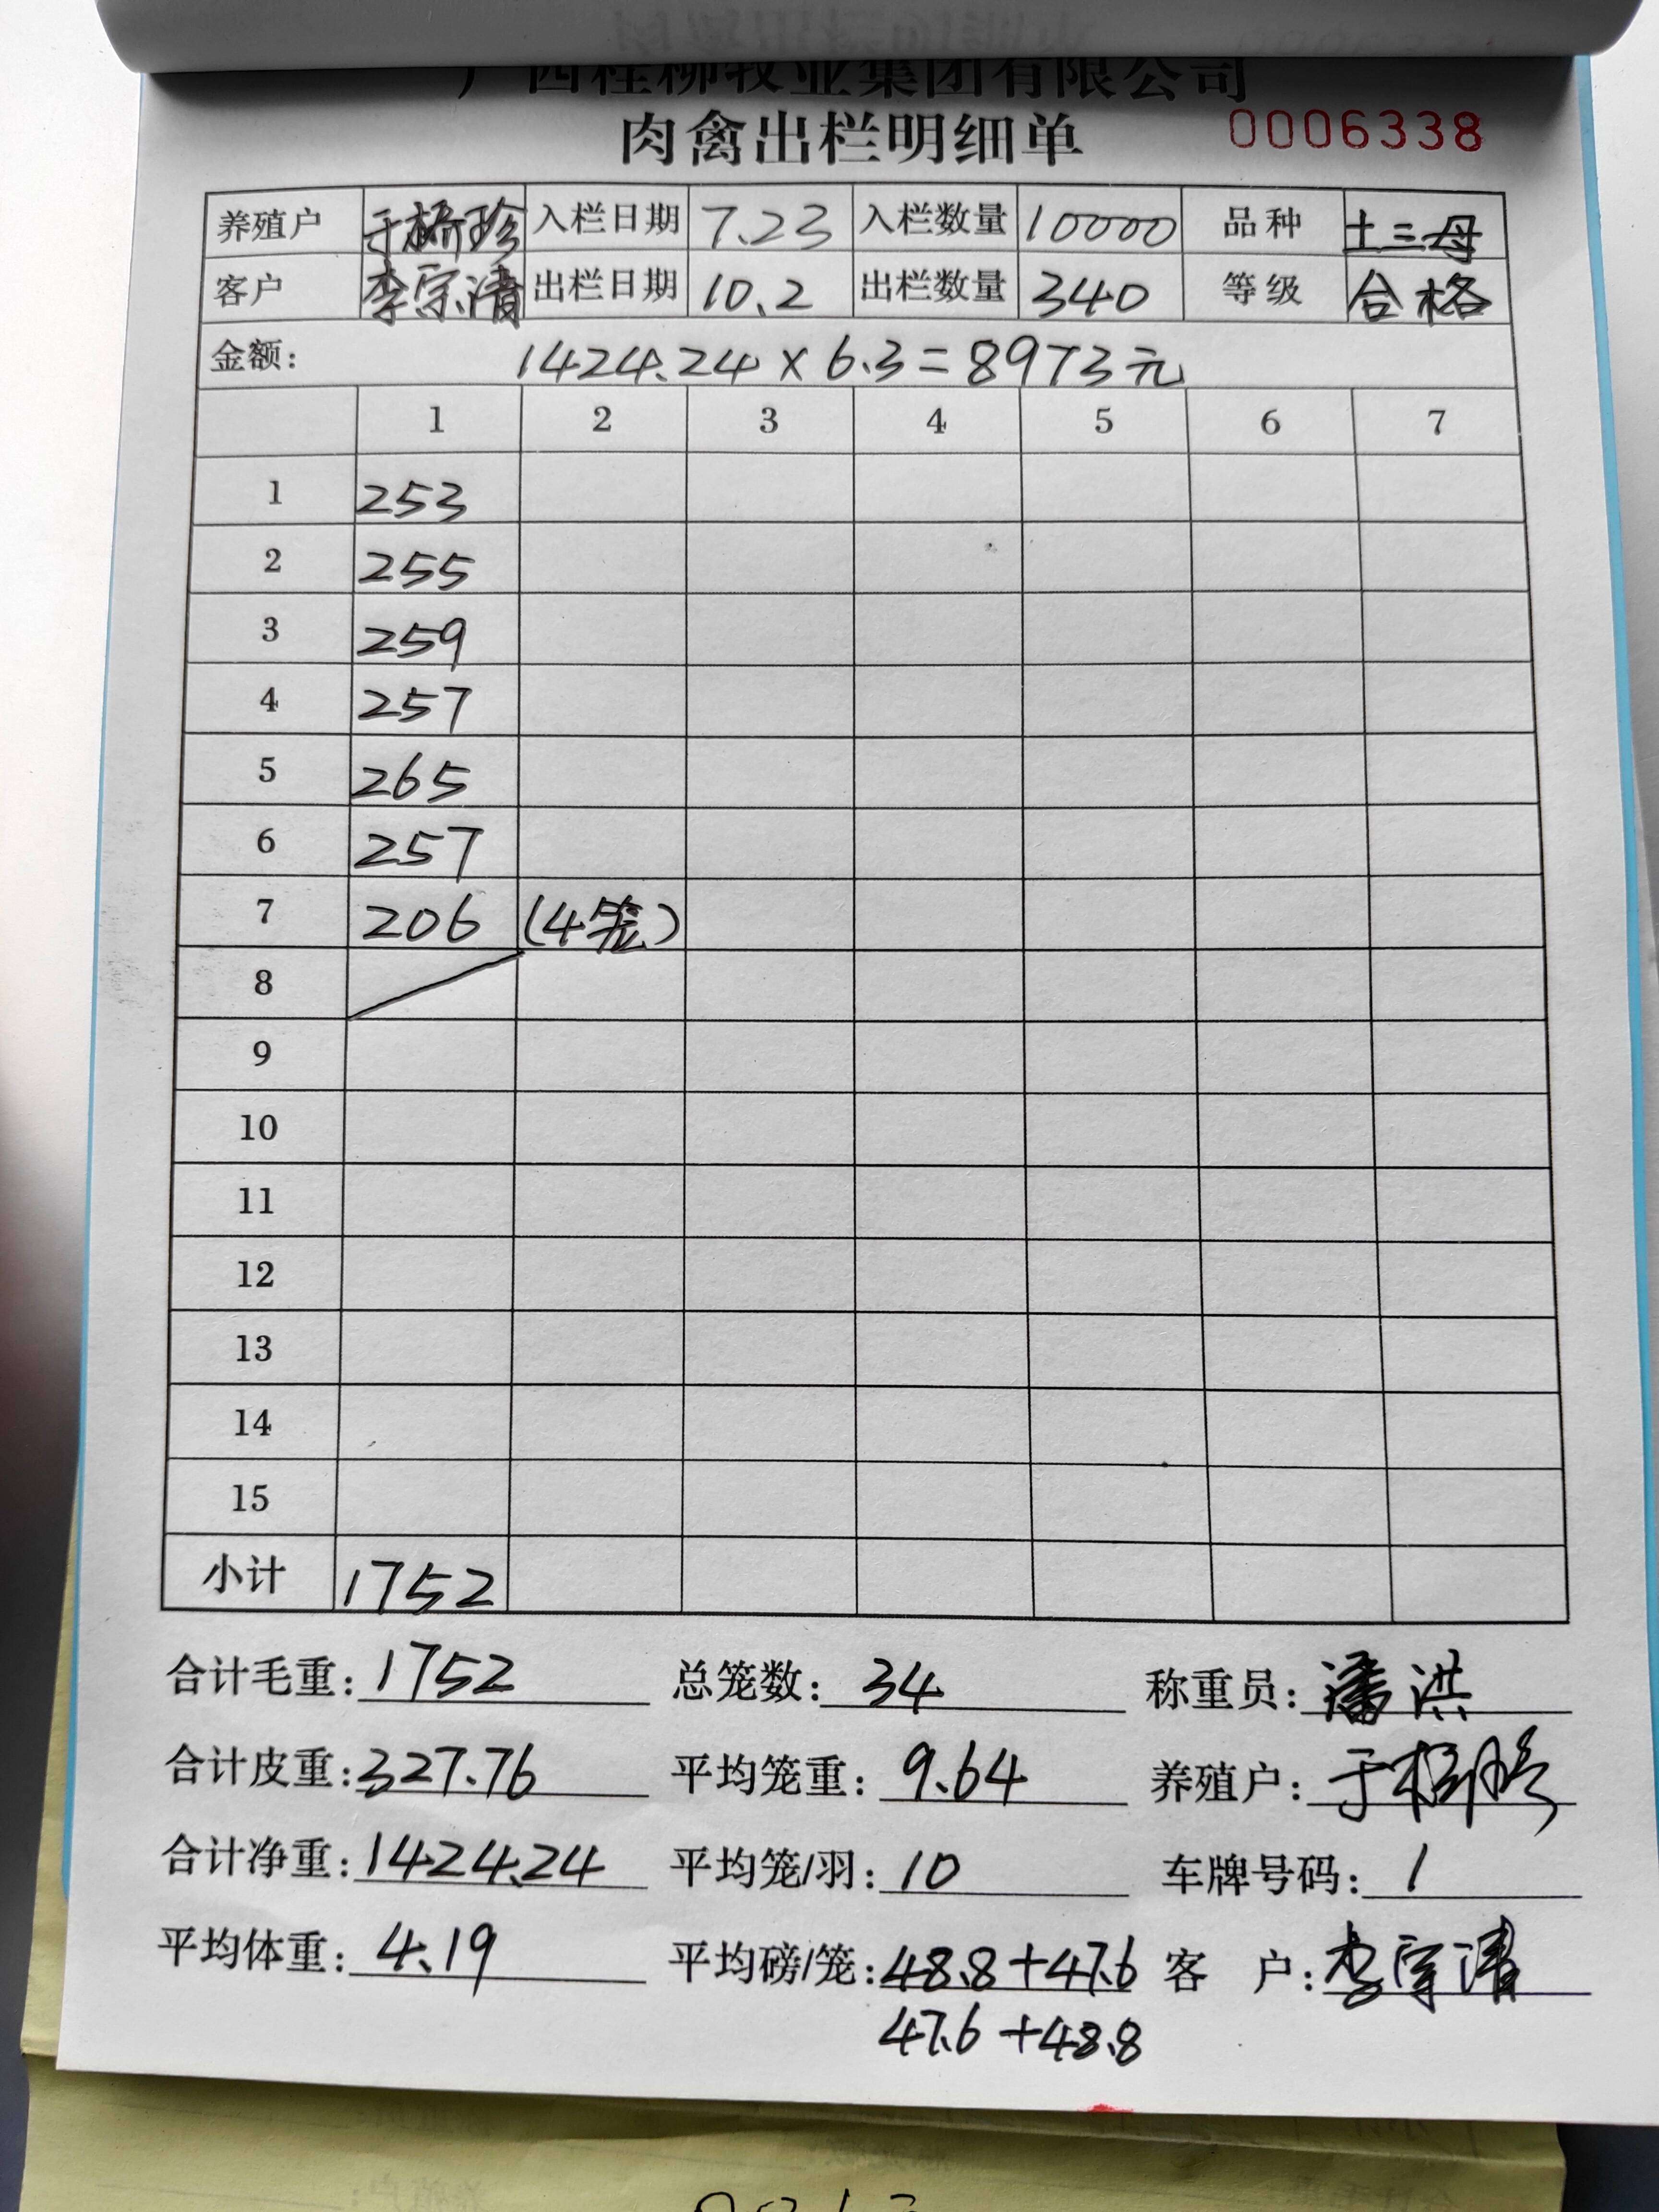 广西桂柳牧业集团有限公司
肉禽出栏明细单 0006338
养殖户 于桥珍 入栏日期 7.23 入栏数量 10000 品种 土三母
客户 李宗清 出栏日期 10.2 出栏数量 340 等级 合格
金额: 1424.24×6.3=8973元
1 2 3 4 5 6 7
1 253
2 255
3 259
4 257
5 265
6 257
7 206 (4笼)
8
9
10
11
12
13
14
15
小计 1752
合计毛重: 1752 总笼数: 34 称重员: 潘洪
合计皮重: 327.76 平均笼重: 9.64 养殖户: 于桥珍
合计净重: 1424.24 平均笼/羽: 10 车牌号码: 1
平均体重: 4.19 平均磅/笼: 48.8+47.6 客户: 李宗清
47.6+48.8